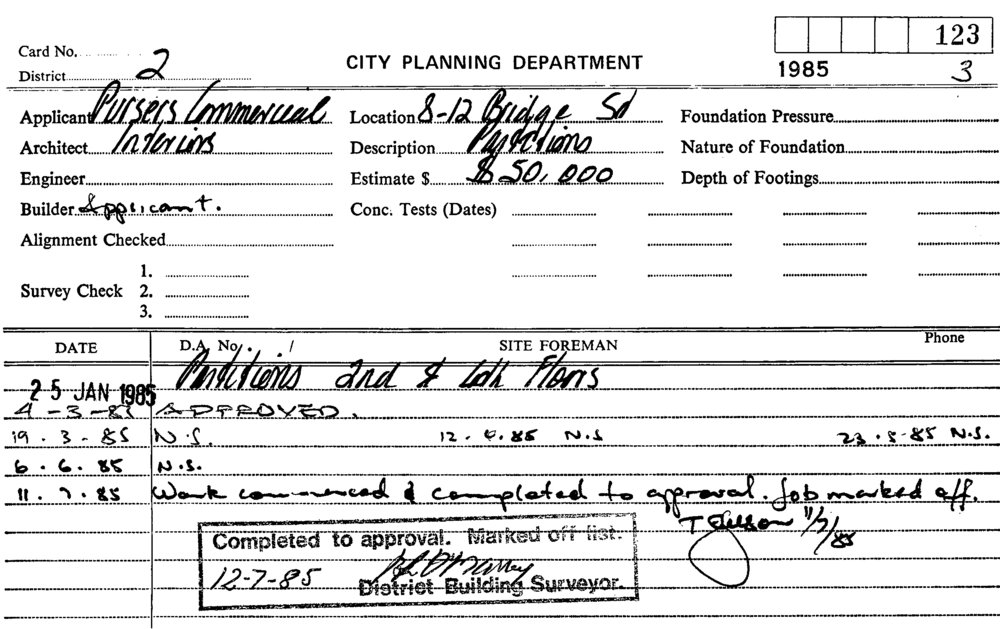 123
Card No. 2
CITY PLANNING DEPARTMENT
1985 3
District
Applicant Pursers Commercial Location 8-12 Bridge St Foundation Pressure
Architect Interiors Description Partitions Nature of Foundation
Engineer Estimate $ $50,000 Depth of Footings
Builder Applicant. Conc. Tests (Dates)
Alignment Checked
1.
Survey Check 2.
3.
DATE D.A. No. / SITE FOREMAN Phone
25 JAN 1985 Partitions 2nd & 6th Floors
4-3-85 APPROVED.
19.3.85 N.S. 12.4.85 N.S 23.5.85 N.S.
6.6.85 N.S.
11.7.85 Work commenced & completed to approval. Job marked off.
11/7/85
Completed to approval. Marked off list.
12-7-85
District Building Surveyor.